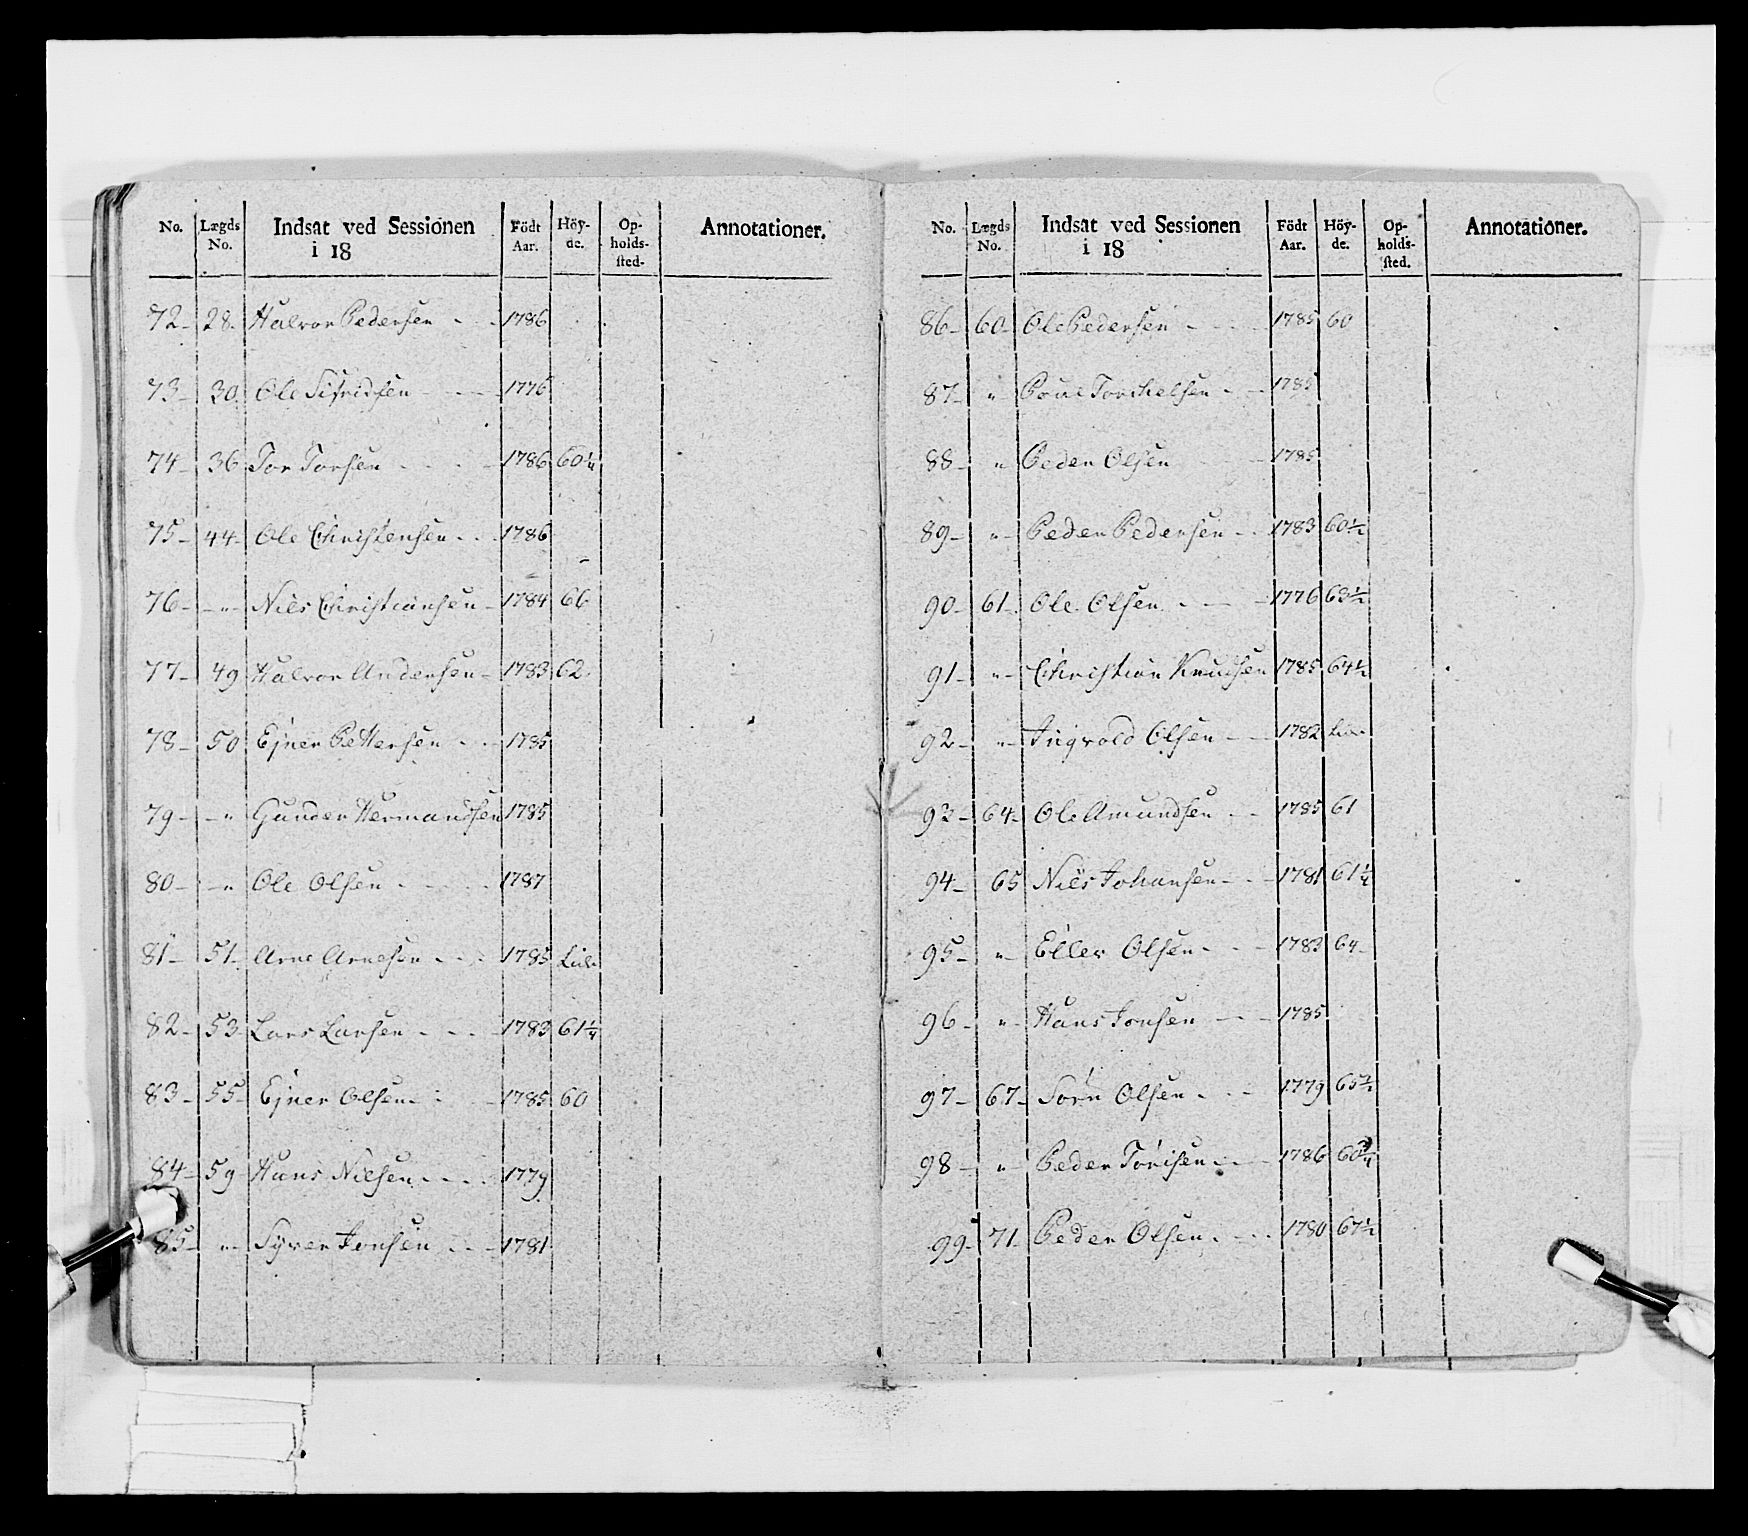 No. Lægds No. Indsat ved Sessionen i 18 Födt Aar. Höy-de. Op-holds-sted. Annotationer.
72 - 28. Halvor Pedersen - - 1786
73 - 30. Ole Sifridsen - - - 1776
74 - 36 Tor Torsen - - - 1786 60¼
75 - 44 - Ole Christensen - - 1786
76 - - " - Niels Christiansen - 1784 66
77 - 49 Halvor Andersen - 1783 62.
78 - 50 Ejner Pettersen - - 1785
79 - - " Gunder Hermandsen 1785
80 - - " Ole Olsen - - - 1787
81 - 51 - Arne Arnesen - - - 1785
82 - 53 Lars Larsen - - - 1783 61¼
83 - 55 - Ejner Olsen - - 1785 60
84 - 59 Hans Nielsen - - - 1779
85 - " - Syver Jonsen - - 1781
No. Lægds No. Indsat ved Sessionen i 18 Födt Aar. Höy-de. Op-holds-sted. Annotationer.
86 - 60 - Ole Pedersen - - - 1785 60
87 - " Poul Torkelsen - - 1785
88 - " Peder Olsen - 1785
89 - " - Peder Pedersen - - 1783 60½
90 - 61 - Ole Olsen - - - 1776 63½
91 - " - Christian Knudsen 1785 64½
92 - " - Ingvold Olsen - - 1782
93 - 64 - Ole Amundsen - - 1785 61
94 - 65 Niels Johansen - - 1781 61½
95 - " - Eller Olsen - - - 1783 64 -
96 - " - Hans Jonsen - - 1785
97 - 67 - Sörn Olsen - - - 1779
98 - " - Peder Törisen - - 1786 60¾
99 - 71 - Peder Olsen - - - 1780 67½